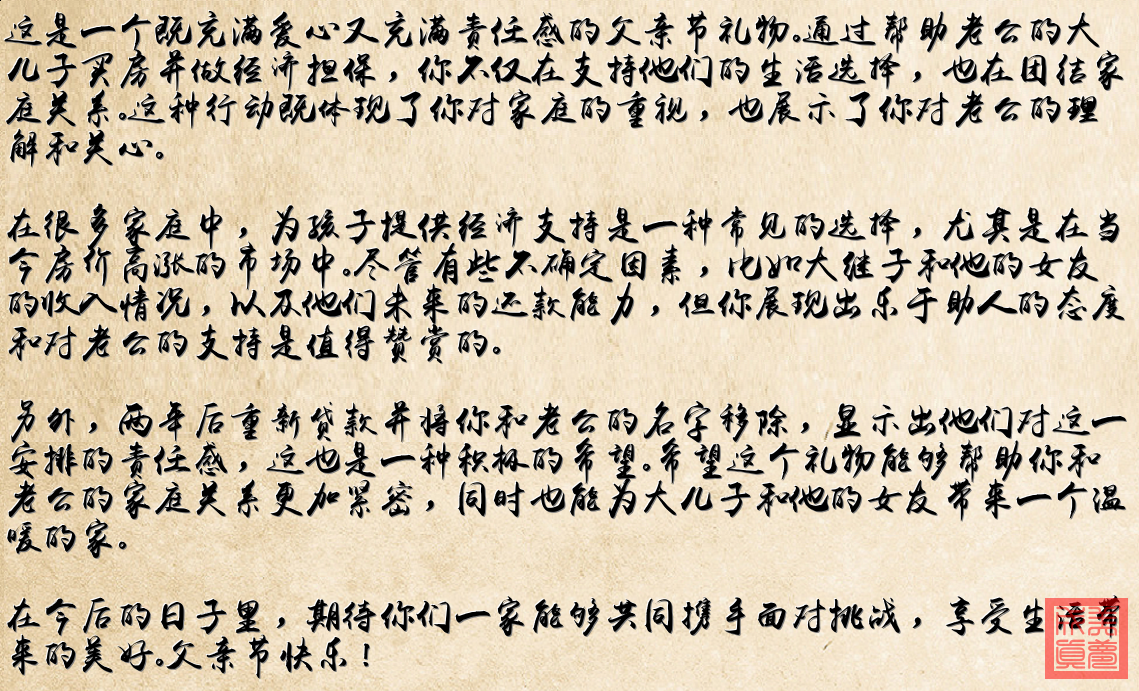 这是一个既充满爱心又充满责任感的父亲节礼物。通过帮助老公的大
儿子买房并做经济担保，你不仅在支持他们的生活选择，也在团结家
庭关系。这种行动既体现了你对家庭的重视，也展示了你对老公的理
解和关心。
在很多家庭中，为孩子提供经济支持是一种常见的选择，尤其是在当
今房价高涨的市场中。尽管有些不确定因素，比如大继子和他的女友
的收入情况，以及他们未来的还款能力，但你展现出乐于助人的态度
和对老公的支持是值得赞赏的。
另外，两年后重新贷款并将你和老公的名字移除，显示出他们对这一
安排的责任感，这也是一种积极的希望。希望这个礼物能够帮助你和
老公的家庭关系更加紧密，同时也能为大儿子和他的女友带来一个温
暖的家。
在今后的日子里，期待你们一家能够共同携手面对挑战，享受生活带
来的美好。父亲节快乐！